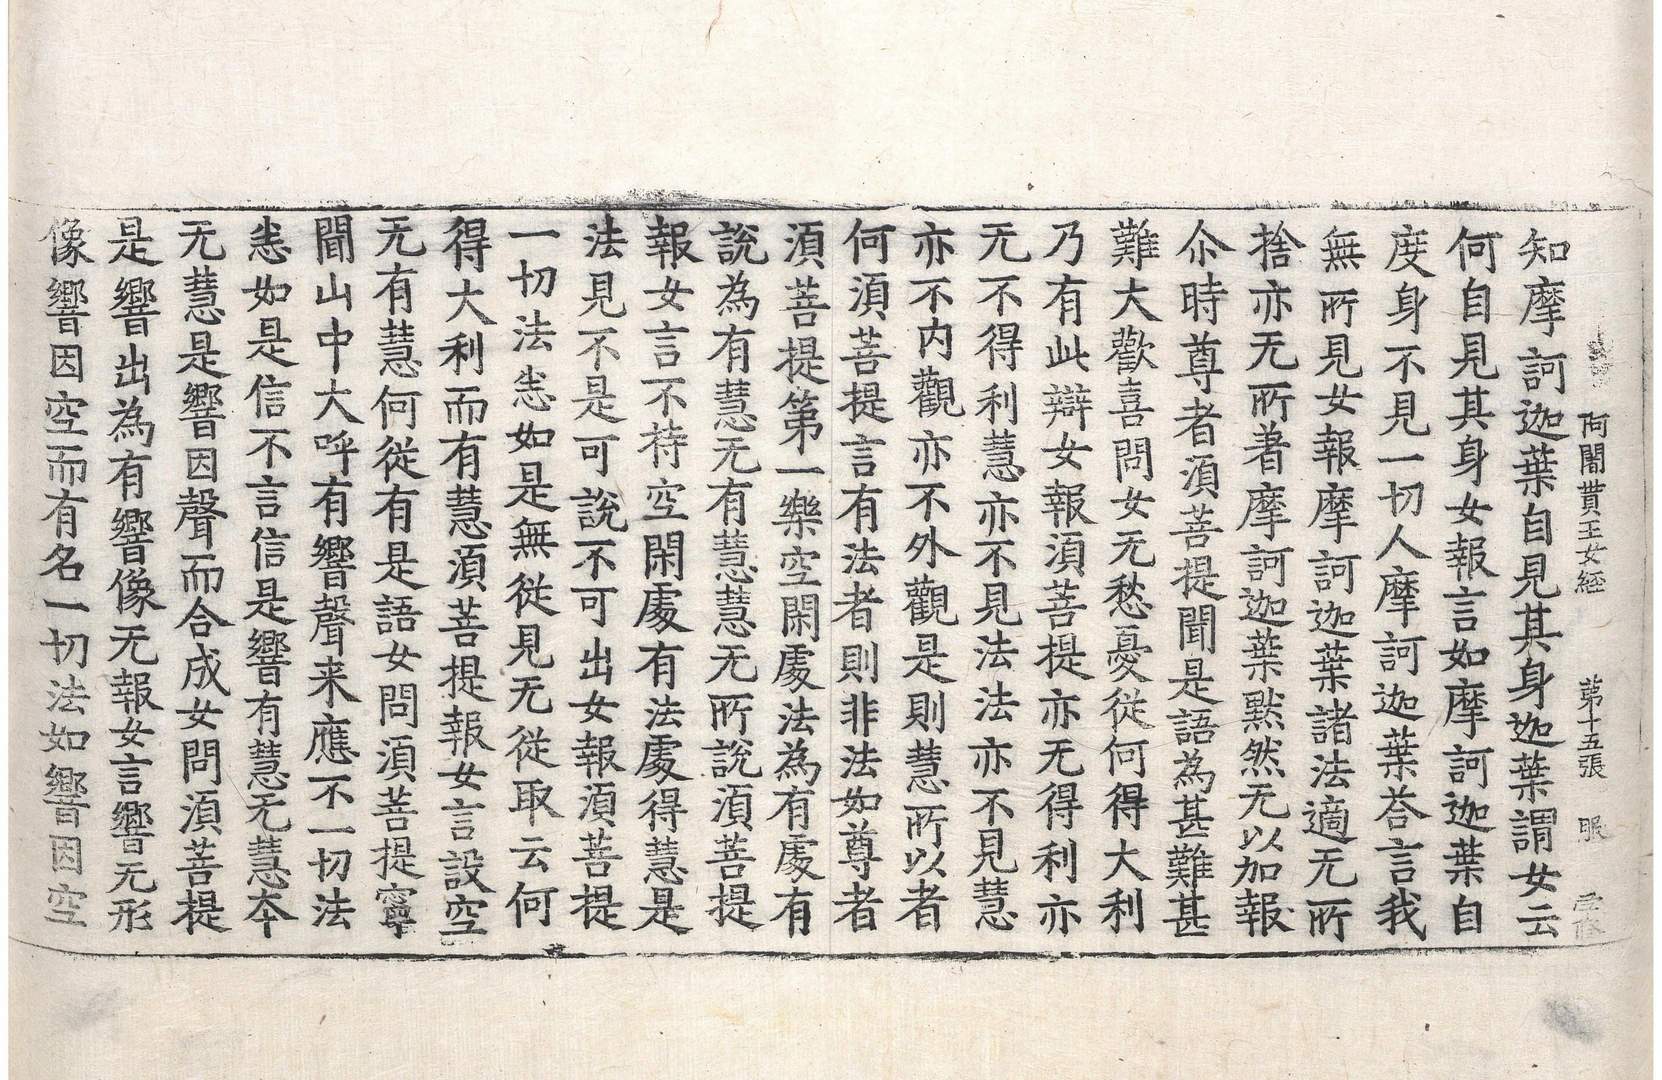 阿闍貰王女経 第十五張 眠
知摩訶迦葉自見其身迦葉謂女云
何自見其身女報言如摩訶迦葉自
度身不見一切人摩訶迦葉荅言我
無所見女報摩訶迦葉諸法適无所
捨亦无所著摩訶迦葉默然无以加報
尒時尊者湏菩提聞是語為甚難甚
難大歡喜問女无愁憂従何得大利
乃有此辯女報湏菩提亦无得利亦
无不得利慧亦不見法法亦不見慧
亦不内觀亦不外觀是則慧所以者
何湏菩提言有法者則非法如尊者
湏菩提第一樂空閑處法為有處有
說為有慧无有慧慧无所說湏菩提
報女言不待空閑處有法處得慧是
法見不是可說不可出女報湏菩提
一切法恚如是無従見无従取云何
得大利而有慧湏菩提報女言設空
无有慧何従有是語女問湏菩提寧
聞山中大呼有響聲来應不一切法
恚如是信不言信是響有慧无慧夲
无慧是響因聲而合成女問湏菩提
是響出為有響像无報女言響无形
像響因空而有名一切法如響因空